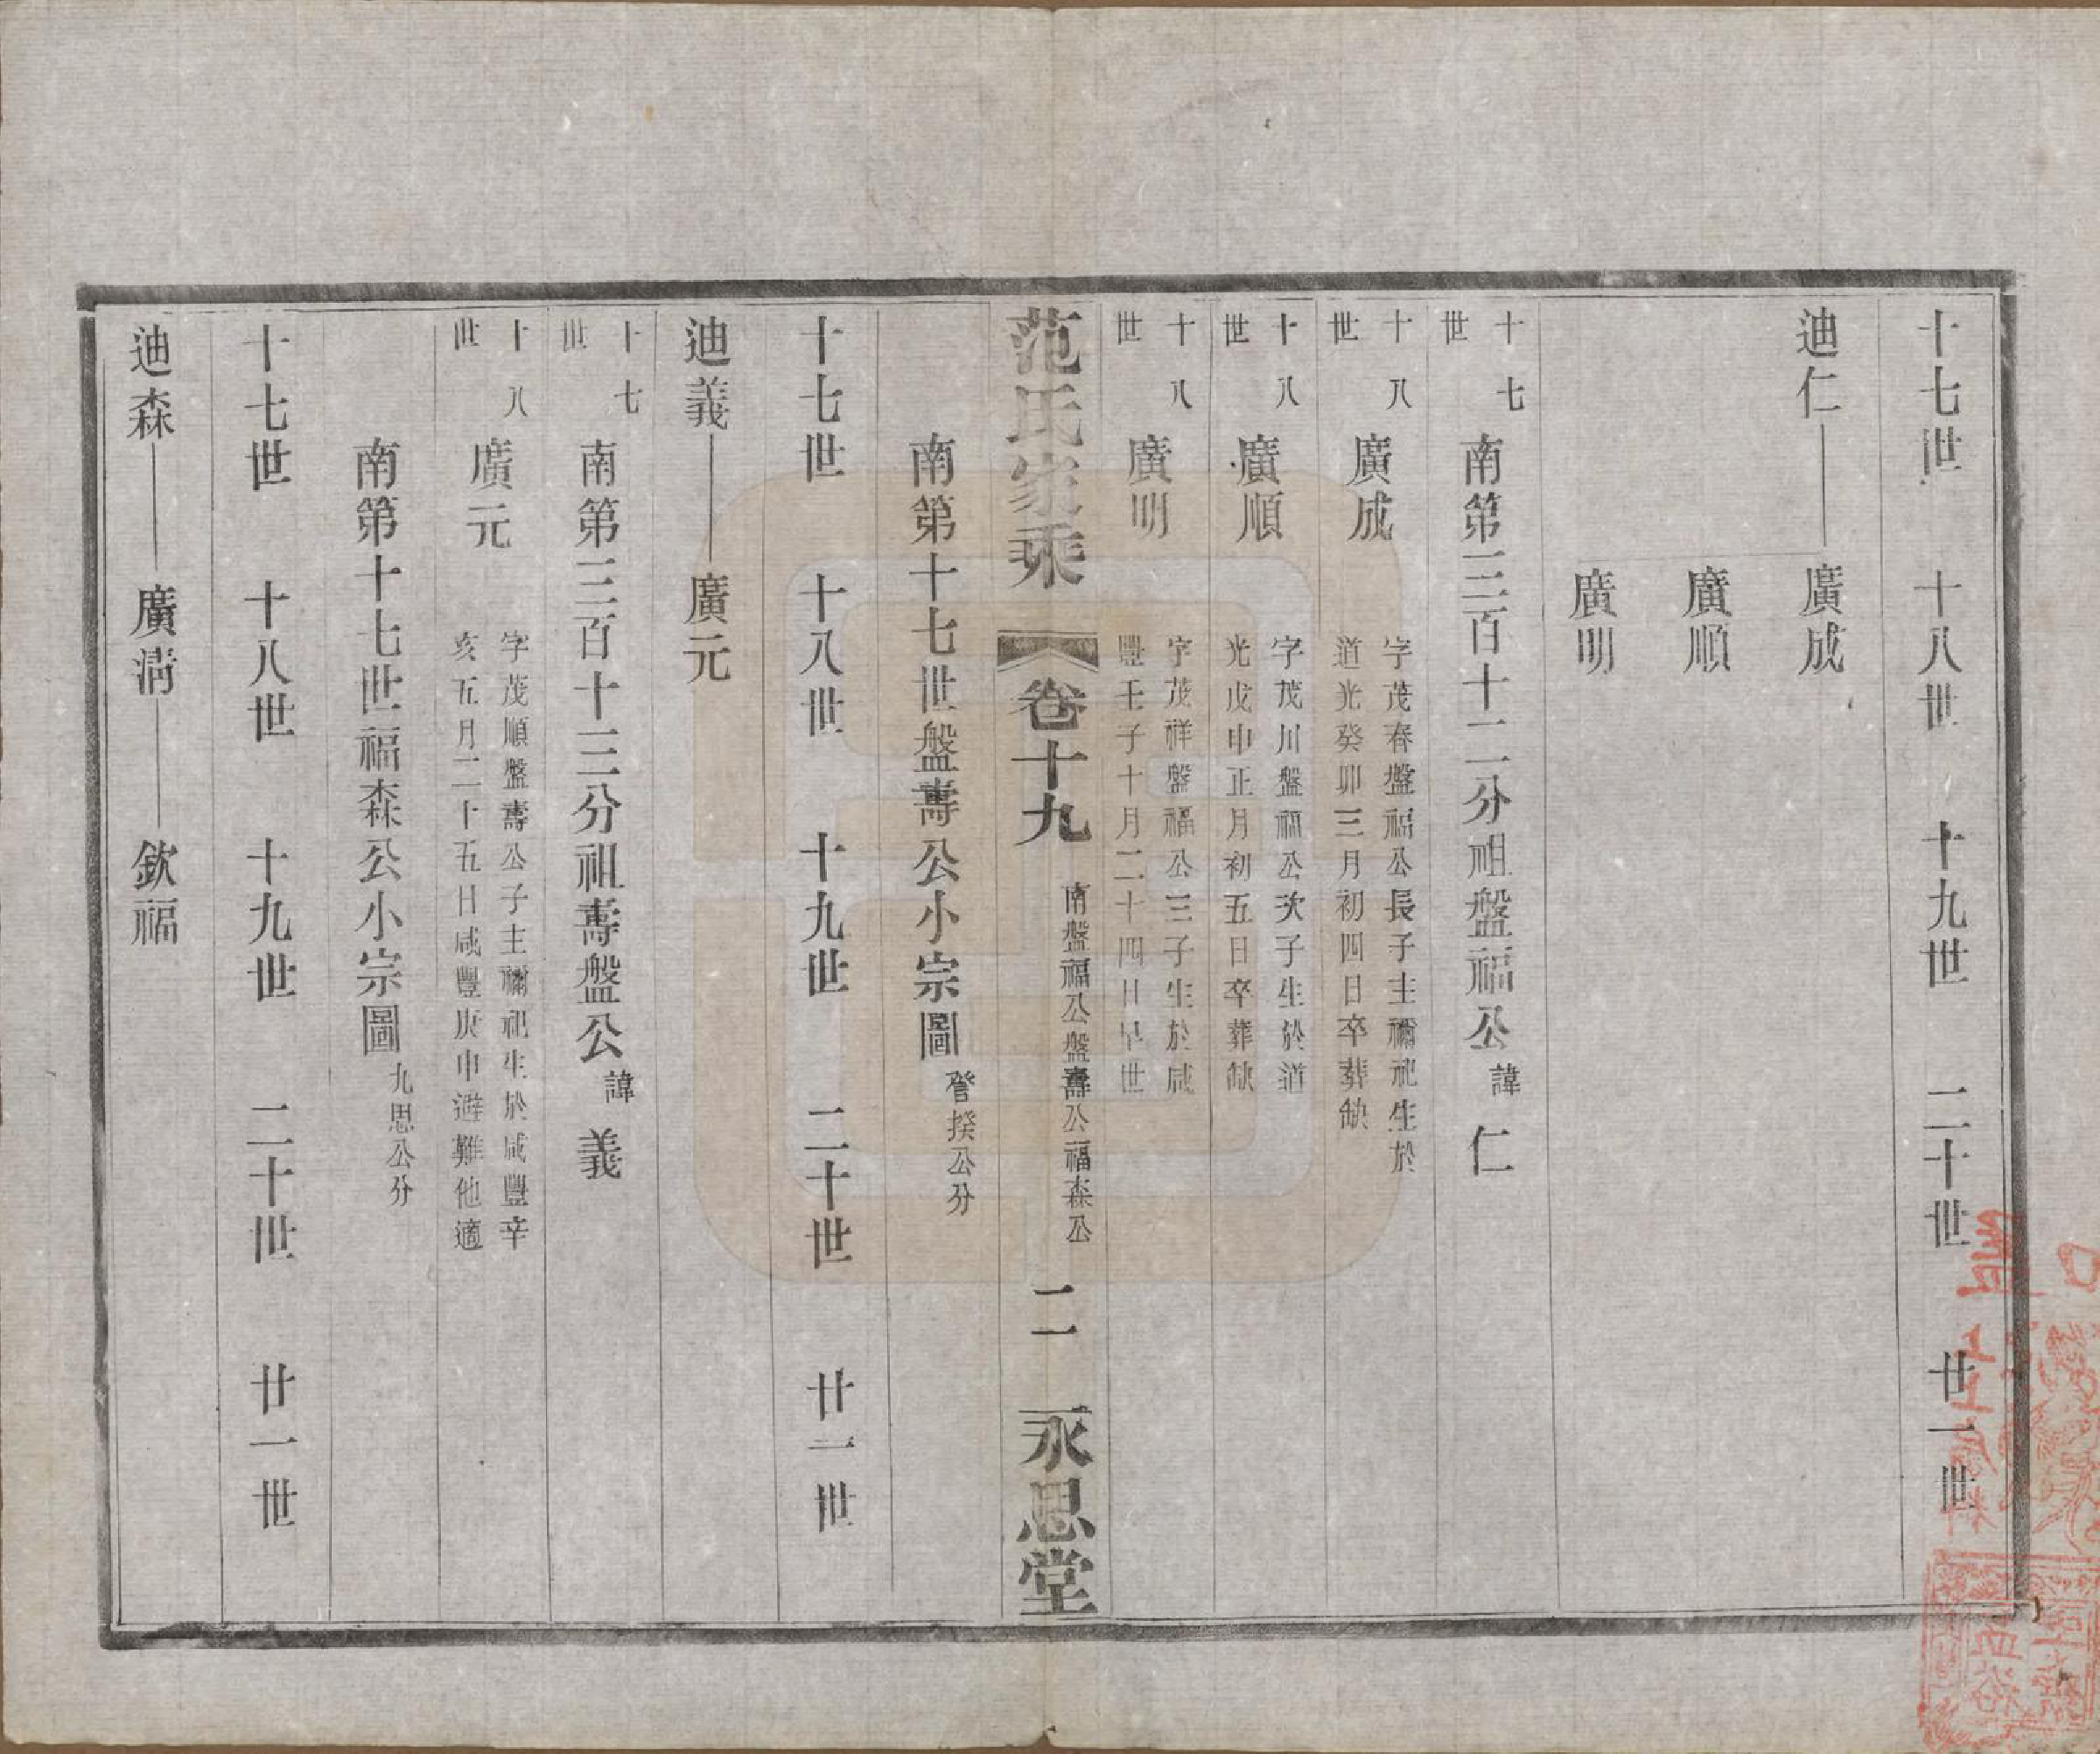 十七世　十八世　十九世　二十世　廿一世
迪仁　廣成
廣順
廣明
十七世　南第三百十二分祖盤福公諱仁
十八世　廣成　字茂春盤福公長子主禰祀生於
道光癸卯三月初四日卒葬缺
十八世　廣順　字茂川盤福公次子生於道
光戊申正月初五日卒葬缺
十八世　廣明　字茂祥盤福公三子生於咸
豐壬子十月二十四日早世
范氏家乘　卷十九　南盤福公盤壽公福森公　二　永思堂
南第十七世盤壽公小宗圖　揆公分
十七世　十八世　十九世　二十世　廿一世
迪義　廣元
十七世　南第三百十三分祖壽盤公諱義
十八世　廣元　字茂順盤壽公子主禰祀生於咸豐辛
亥五月二十五日咸豐庚申避難他適
南第十七世福森公小宗圖　九思公分
十七世　十八世　十九世　二十世　廿一世
迪森　廣清　欽福